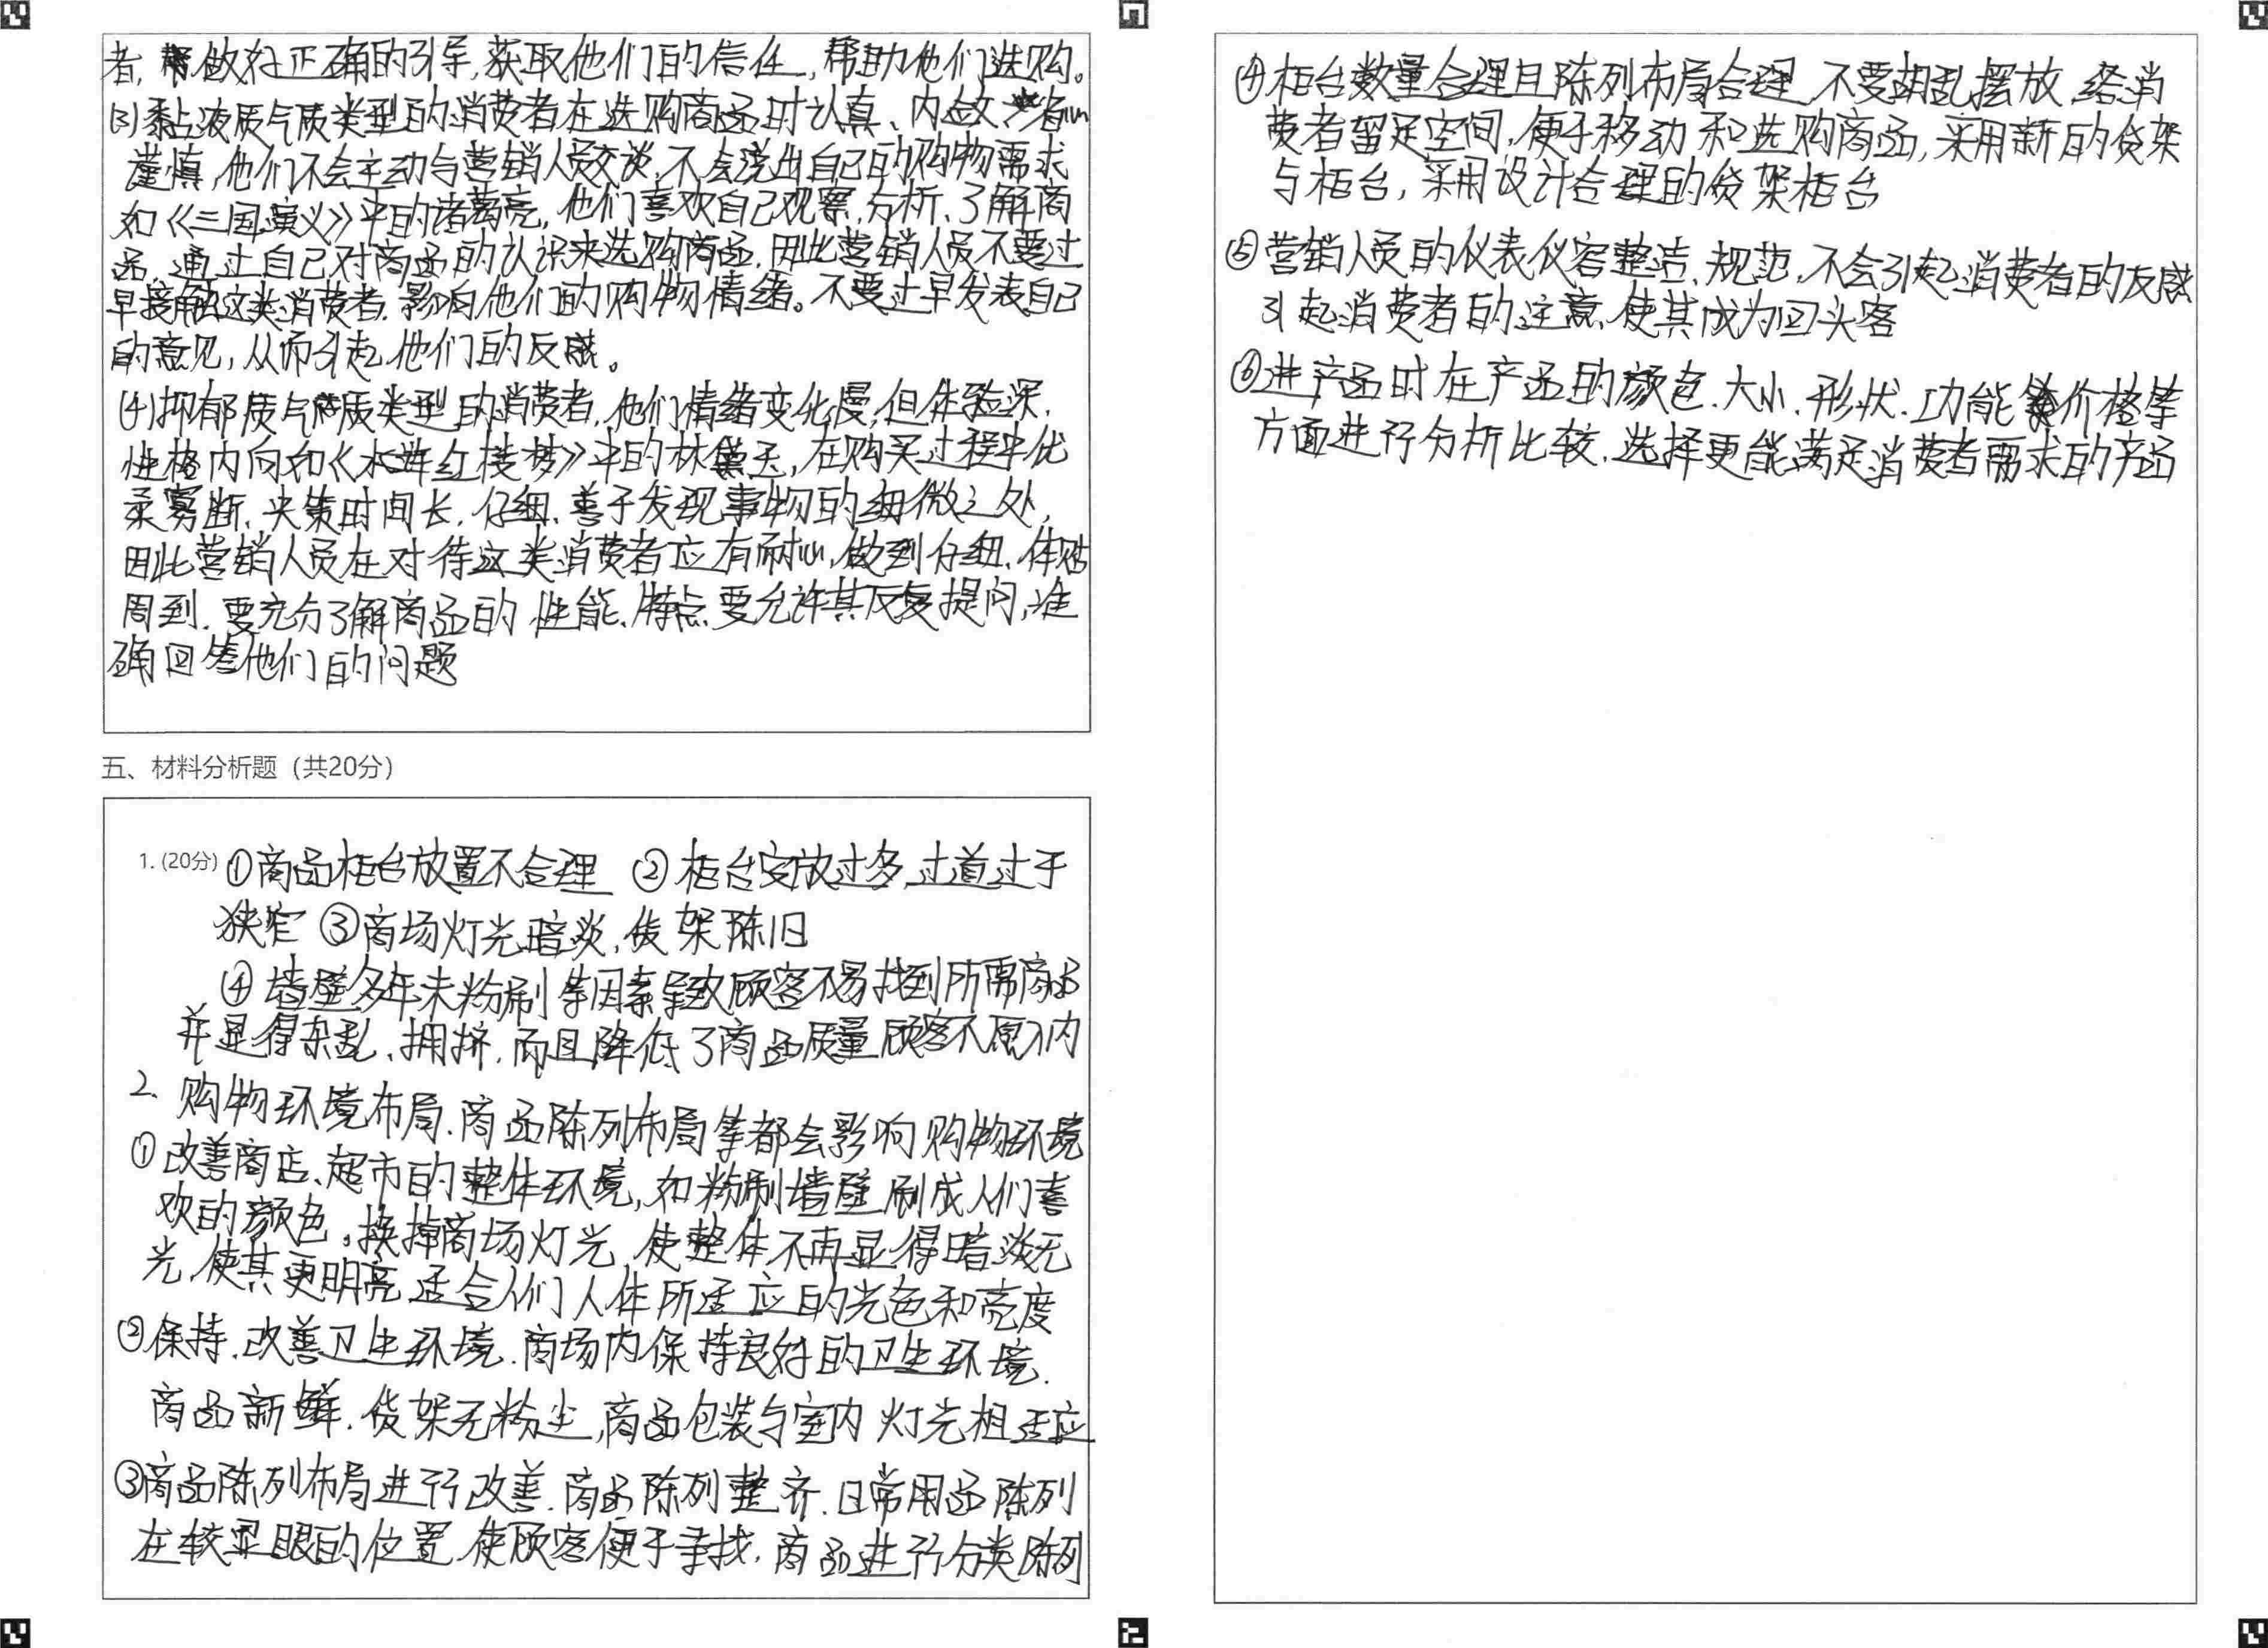 者，做好正确的引导，获取他们的信任，帮助他们选购。
(3)黏液质气质类型的消费者在选购商品时认真、内敛、
谨慎，他们不会主动与营销人员交谈，不会说出自己的购物需求
如《三国演义》中的诸葛亮，他们喜欢自己观察，分析、了解商
品，通过自己对商品的认识来选购商品，因此营销人员不要过
早接触这类消费者，影响他们的购物情绪。不要过早发表自己
的意见，从而引起他们的反感。
(4)抑郁质气质类型的消费者，他们情绪变化慢，但体验深，
性格内向如《红楼梦》中的林黛玉，在购买过程中优
柔寡断，决策时间长，仔细，善于发现事物的细微之处，
因此营销人员在对待这类消费者应有耐心，做到仔细、体贴
周到，要充分了解商品的性能、特点，要允许其反复提问，准
确回答他们的问题
五、材料分析题（共20分）
1. (20分) ①商品柜台放置不合理 ②柜台安放过多，过道过于
狭窄 ③商场灯光暗淡，货架陈旧
④墙壁多年未粉刷等因素导致顾客不易找到所需商品
并显得杂乱、拥挤，而且降低了商品质量，顾客不愿入内
2、购物环境布局、商品陈列布局等都会影响购物环境
①改善商店、超市的整体环境，如粉刷墙壁，刷成人们喜
欢的颜色。换掉商场灯光，使整体不再显得暗淡无
光，使其更明亮，适合人们人体所适应的光色和亮度
②保持、改善卫生环境，商场内保持良好的卫生环境，
商品新鲜，货架无粉尘，商品包装与室内灯光相适应
③商品陈列布局进行改善，商品陈列整齐，日常用品陈列
在较显眼的位置，使顾客便于寻找，商品进行分类陈列
④柜台数量合理且陈列布局合理，不要胡乱摆放，给消
费者留足空间，便于移动和选购商品，采用新的货架
与柜台，采用设计合理的货架柜台
⑤营销人员的仪表仪容整洁、规范，不会引起消费者的反感
引起消费者的注意，使其成为回头客
⑥进产品时在产品的颜色、大小、形状、功能、价格等
方面进行分析比较，选择更能满足消费者需求的产品